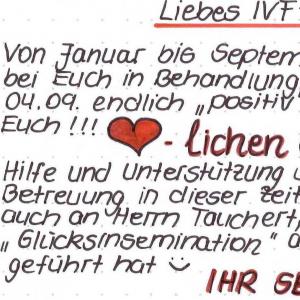 Liebes IVF-
Von Januar bis Septem
bei Euch in Behandlung
04.09. endlich „positiv
Euch !!! ❤ - lichen
Hilfe und Unterstützung u
Betreuung in dieser Zeit
auch an Herrn Tauchert,
„Glücksinsemination" a
geführt hat ☺
IHR SE